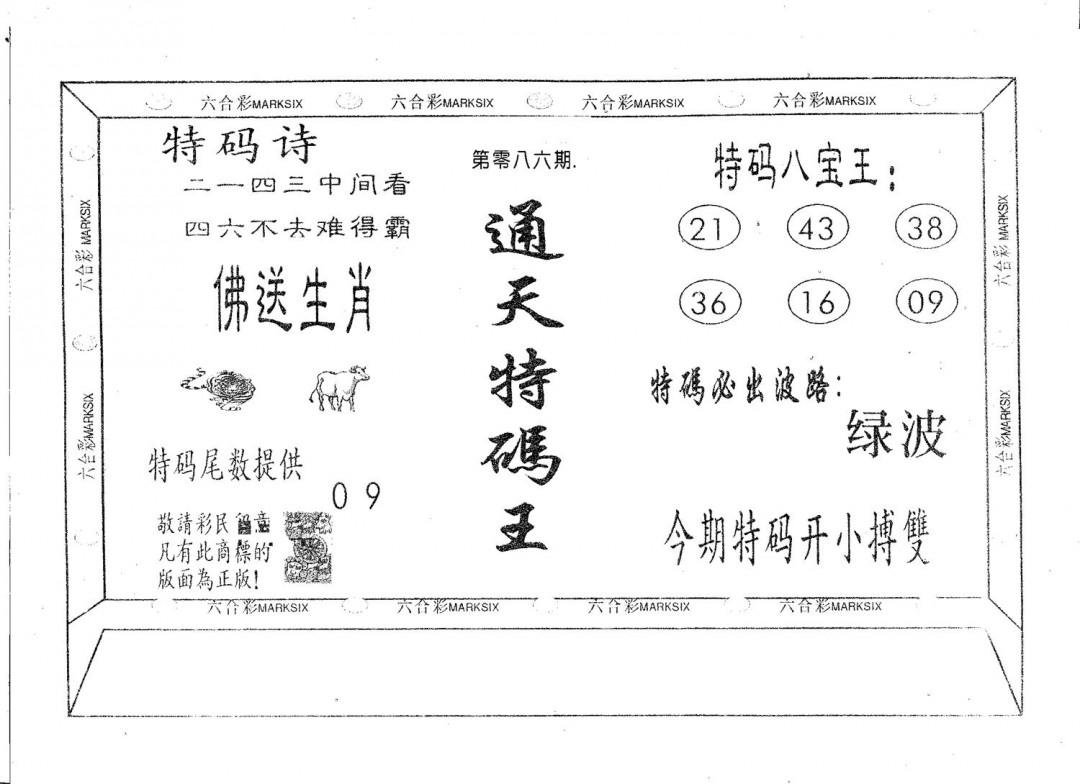 六合彩MARKSIX 六合彩MARKSIX 六合彩MARKSIX 六合彩MARKSIX
六合彩 MARKSIX
六合彩MARKSIX
特码诗
二一四三中间看
四六不去难得霸
佛送生肖
特码尾数提供
0 9
敬請彩民留意
凡有此商標的
版面為正版!
第零八六期.
通天特碼王
特码八宝王:
21 43 38
36 16 09
特碼必出波路:
绿波
今期特码开小搏雙
六合彩 MARKSIX
六合彩MARKSIX
六合彩MARKSIX 六合彩MARKSIX 六合彩MARKSIX 六合彩MARKSIX